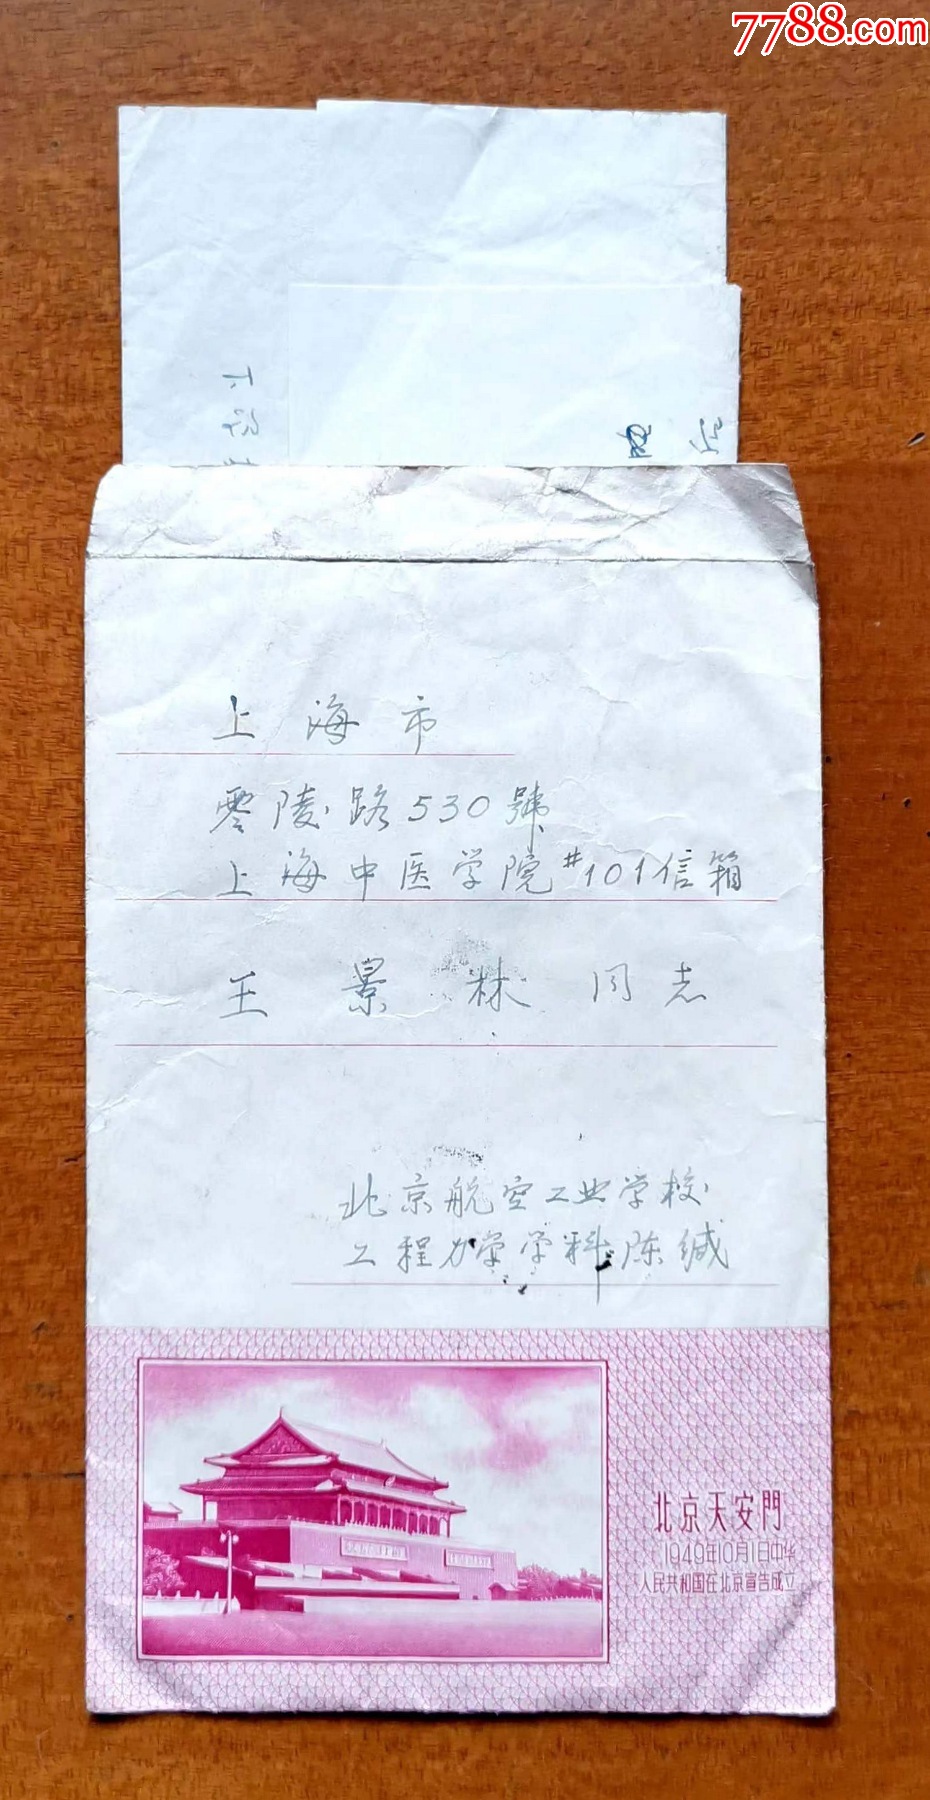 7788.com
上海市
零陵路530號
上海中医学院#101信箱
王景林同志
北京航空工业学校
工程力学学科陈缄
北京天安門
1949年10月1日中华
人民共和国在北京宣告成立